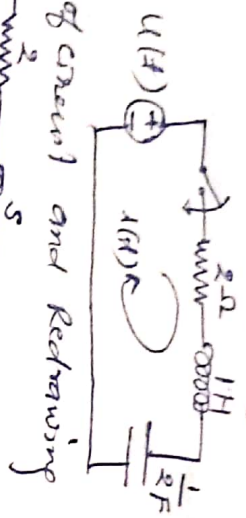 2Ω 1H
u(t) i(t) 1/2F
of circuit and Redrawing
2 s